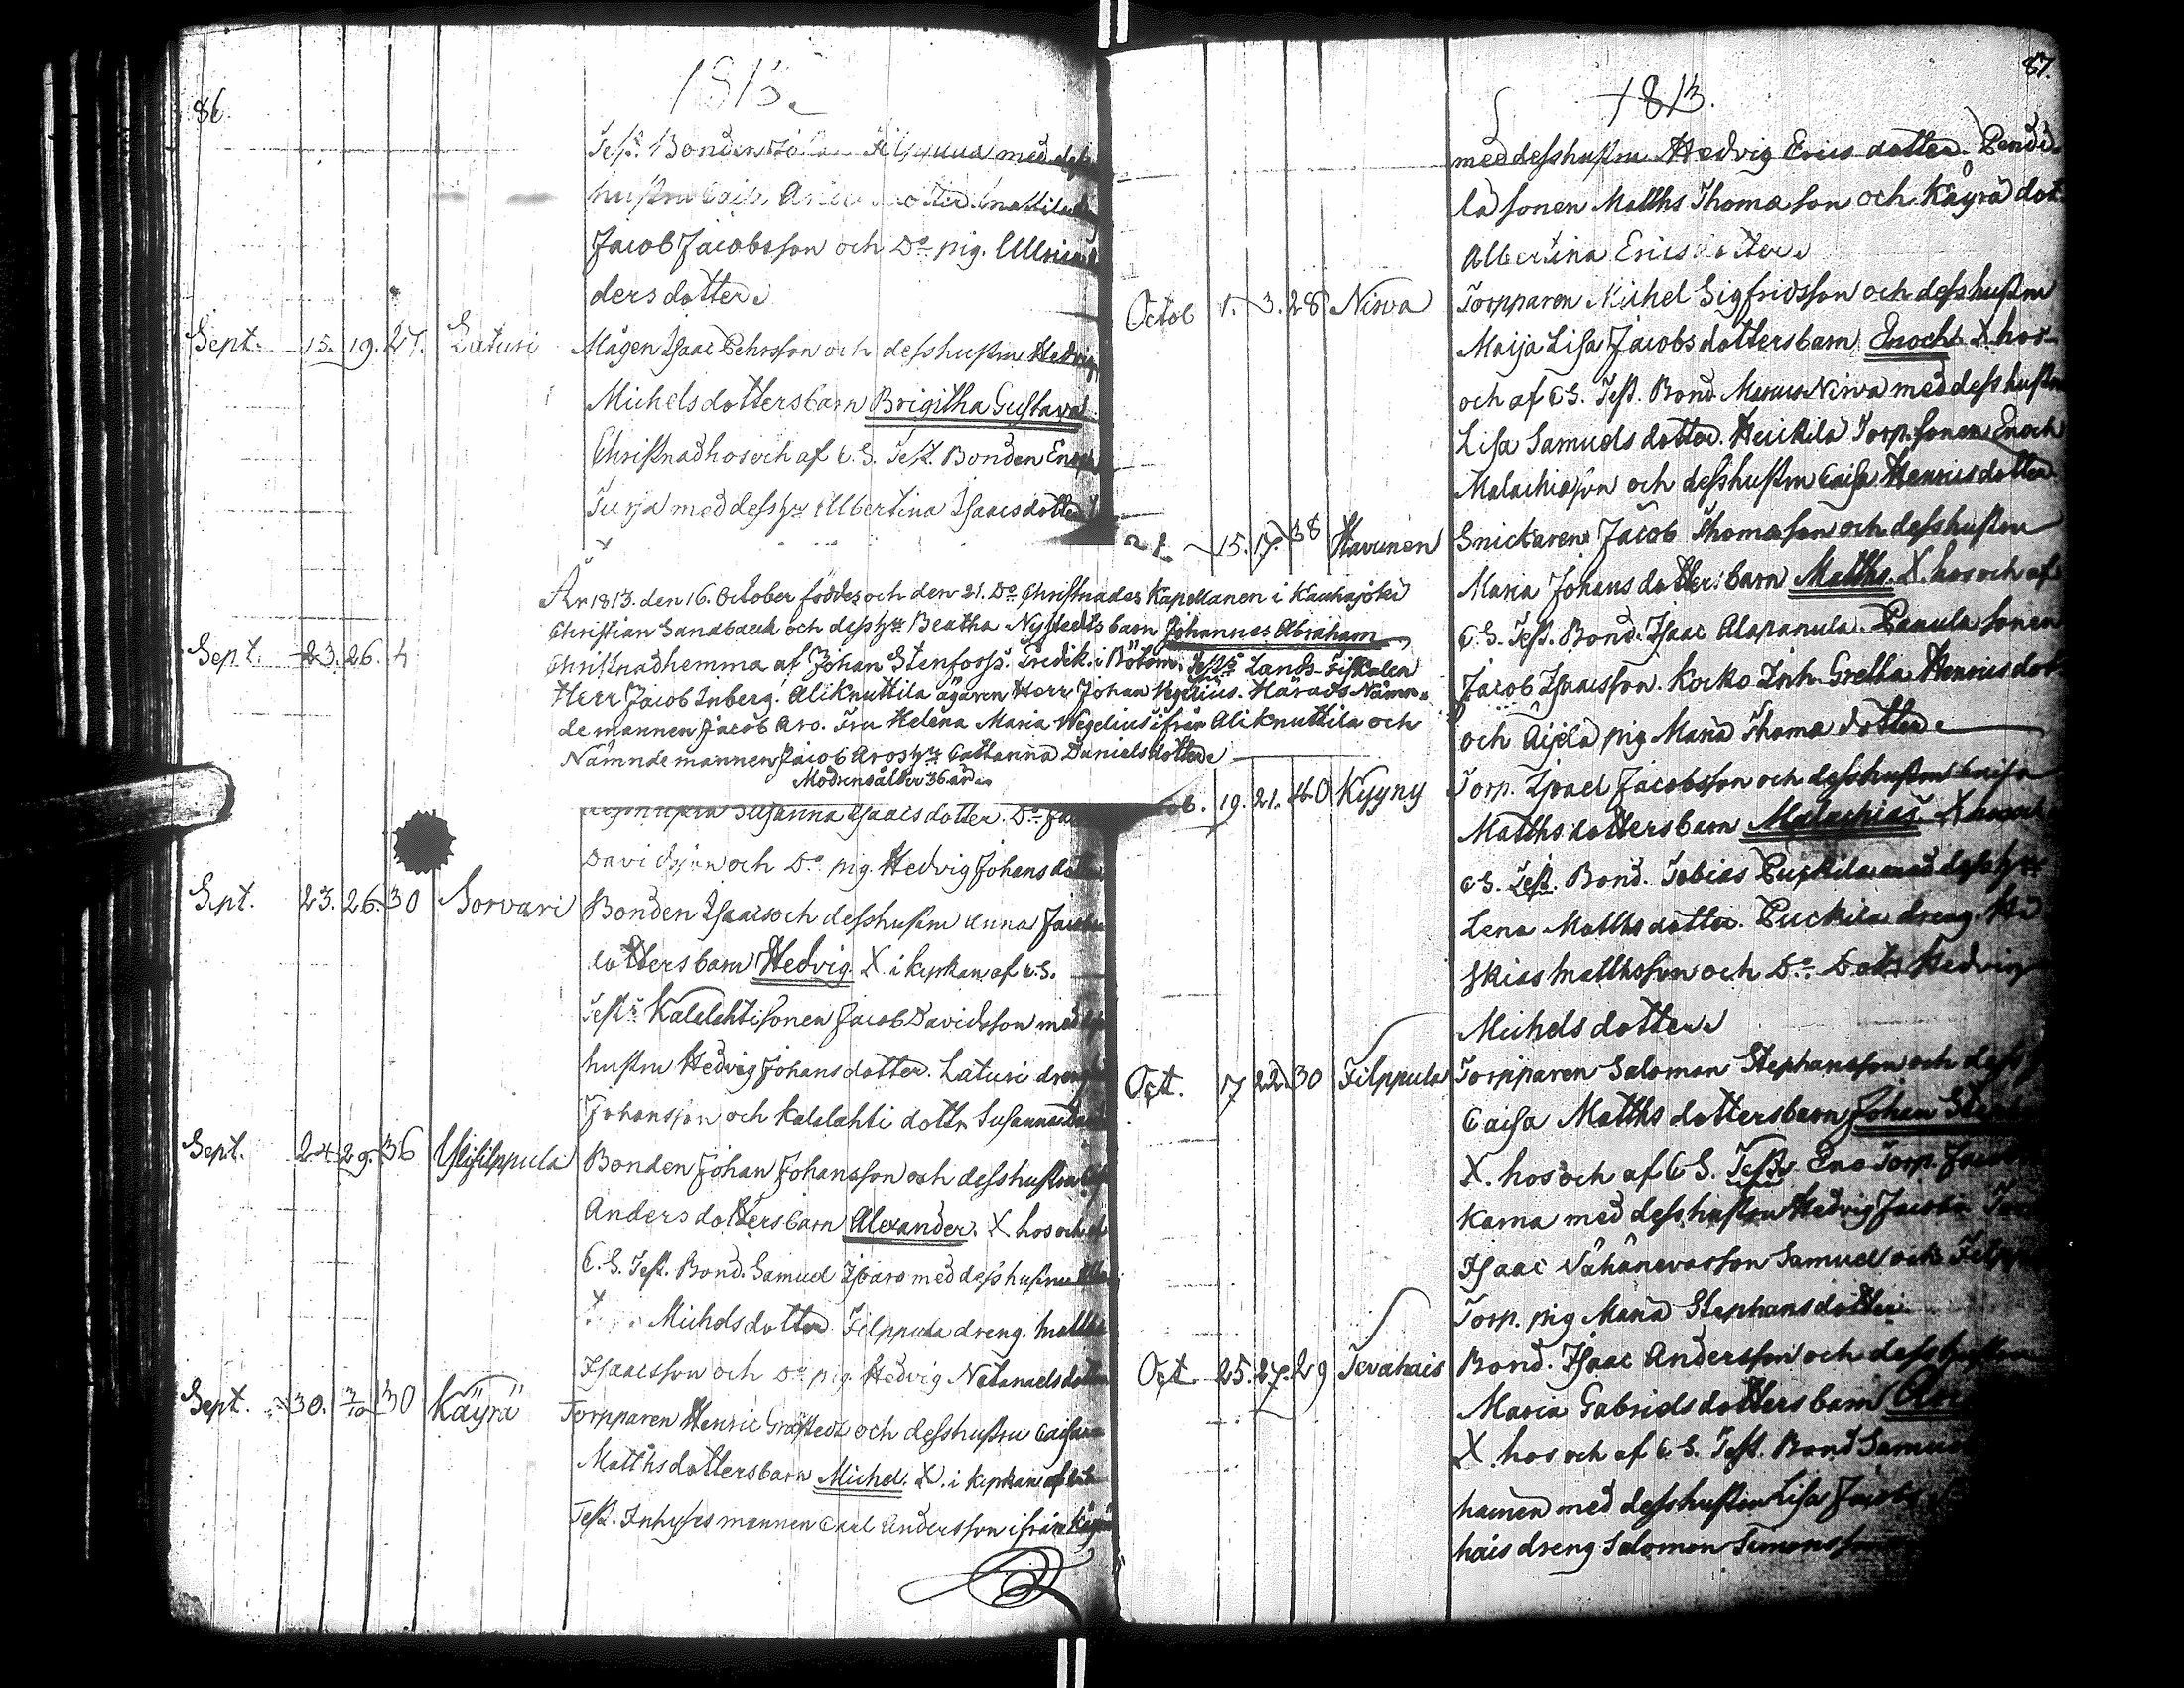 86.
1813.
Test. Bonden med dess
hustru Caisa
Jacob Jacobsson och Do pig. Ulrica
ders dotter.
Sept. 15. 19. 27. Laturi Mågen Isaac Pehrsson och dess hustru Hedvig
Michelsdotters barn Brigitha Gustava
Christnad hos och af C.S. Test. Bonden Enoch
Turja med dess hu Albertina Isaacsdotter
År 1813. den 16. October föddes och den 21. Do Christnades Kapellanen i Kauhajoki
Christian Sandbäck och dess hu Beatha Nystedts barn Johannes Abraham
Christnad hemma af Johan Stenfors. Predik. i Bötom. Test. Lands-Fiskalen
Herr Jacob Inberg. Aliknuttila ägaren Herr Johan Wegelius. Härads Nämn-
demannen Jacob Aro. Fru Helena Maria Wegelius ifrån Aliknuttila och
Nämndemannen Jacob Aros hu Catharina Danielsdotter
Modrens ålder 36 år.
Sept. 23. 26.
dess hustru Susanna Isaacsdotter. Do
Davidsson och Do pig Hedvig Johansdotter
Sept. 23. 26. 30 Sorvari Bonden Isaac och dess hustru Anna
dotters barn Hedvig X i kyrkan af C.S.
Test. Kalalahti sonen Jacob Davidsson med
hustru Hedvig Johansdotter. Laturi dreng
Johansson och Kalalahti dottr Susanna
Sept. 24. 29. 36 Ylifilppula Bonden Johan Johansson och dess hustru
Andersdotters barn Alexander. X hos och af
C.S. Test. Bond. Samuel med dess hustru
Michelsdotter Filppula dreng. Matths
Isaacsson och Do pig Hedvig Natanaelsdotter
Sept. 30. 3/10 30 Käyrä Torpparen Henric Gråstedt och dess hustru Caisa
Matthsdotters barn Michel. X. i kyrkan af
Test. Inhyses mannen Carl Andersson ifrån Käyrä
87.
1813.
med dess hustru Hedvig Ericsdotter. Pendi-
la sonen Matths Thomasson och Käyrä dot.
Albertina Ericsdotter.
Octob 1. 3. 28 Nirva Torpparen Michel Sigfridsson och dess hustru
Maija Lisa Jacobsdotters barn Enoch X hos
och af C.S. Test. Bond. Marcus Nirva med dess hustru
Lisa Samuelsdotter. Heickilä Torp. sonen Enoch
Malachiasson och dess hustru Caisa Henricsdotter
15. 17. 38 Havunen Snickaren Jacob Thomasson och dess hustru
Maria Johansdotters barn Matths. X. hos och af
C.S. Test. Bond. Isaac Alapanula. Panula sonen
Jacob Isaacsson. Kocko Inh. Gretha Henricsdot.
och Äijälä pig Maria Thomædotter
19. 21. 40 Kyyny Torp. Israel Jacobsson och dess hustru Caisa
Matthsdotters barn Malachias. X hos och
C.S. Test. Bond. Tobias Puckila med dess hu
Lena Matthsdotter. Puckila dreng.
Matthsson och Do. Hedvig
Michelsdotter
Oct. 17 22. 30 Filppula Torpparen Salomon Stephansson och dess
Caisa Matthsdotters barn Johan
X. hos och af C.S. Test. Eno Torp.
Karna med dess hustru Hedvig
Isaac Samuel och
Torp. pig Maria Stephansdotter
Oct 25. 27. 29 Tevahais Bond. Isaac Andersson och dess hustru
Maria Gabrielsdotters barn
X. hos och af C.S. Test. Bond Samuel
hainen med dess hustru Lisa
hais dreng Salomon Simonsson